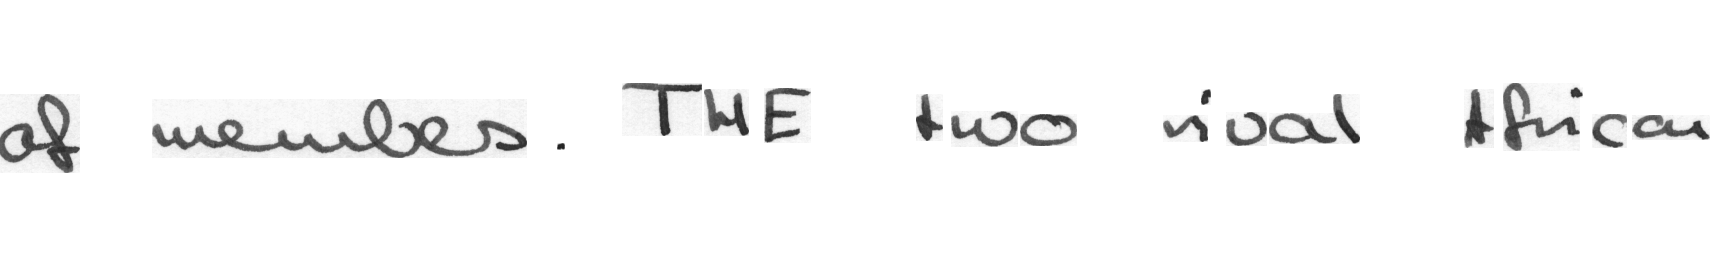 of members. THE two rival African